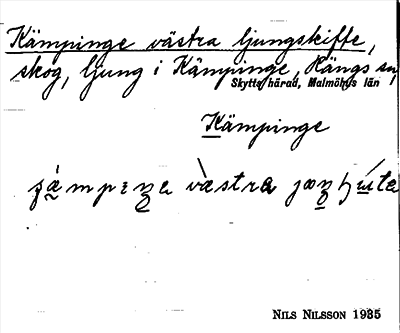 Kämpinge västra ljungskifte,
skog, ljung i Kämpinge, Kängs sn,
Skytts härad, Malmöhus län
Kämpinge
västra
NILS NILSSON 1935